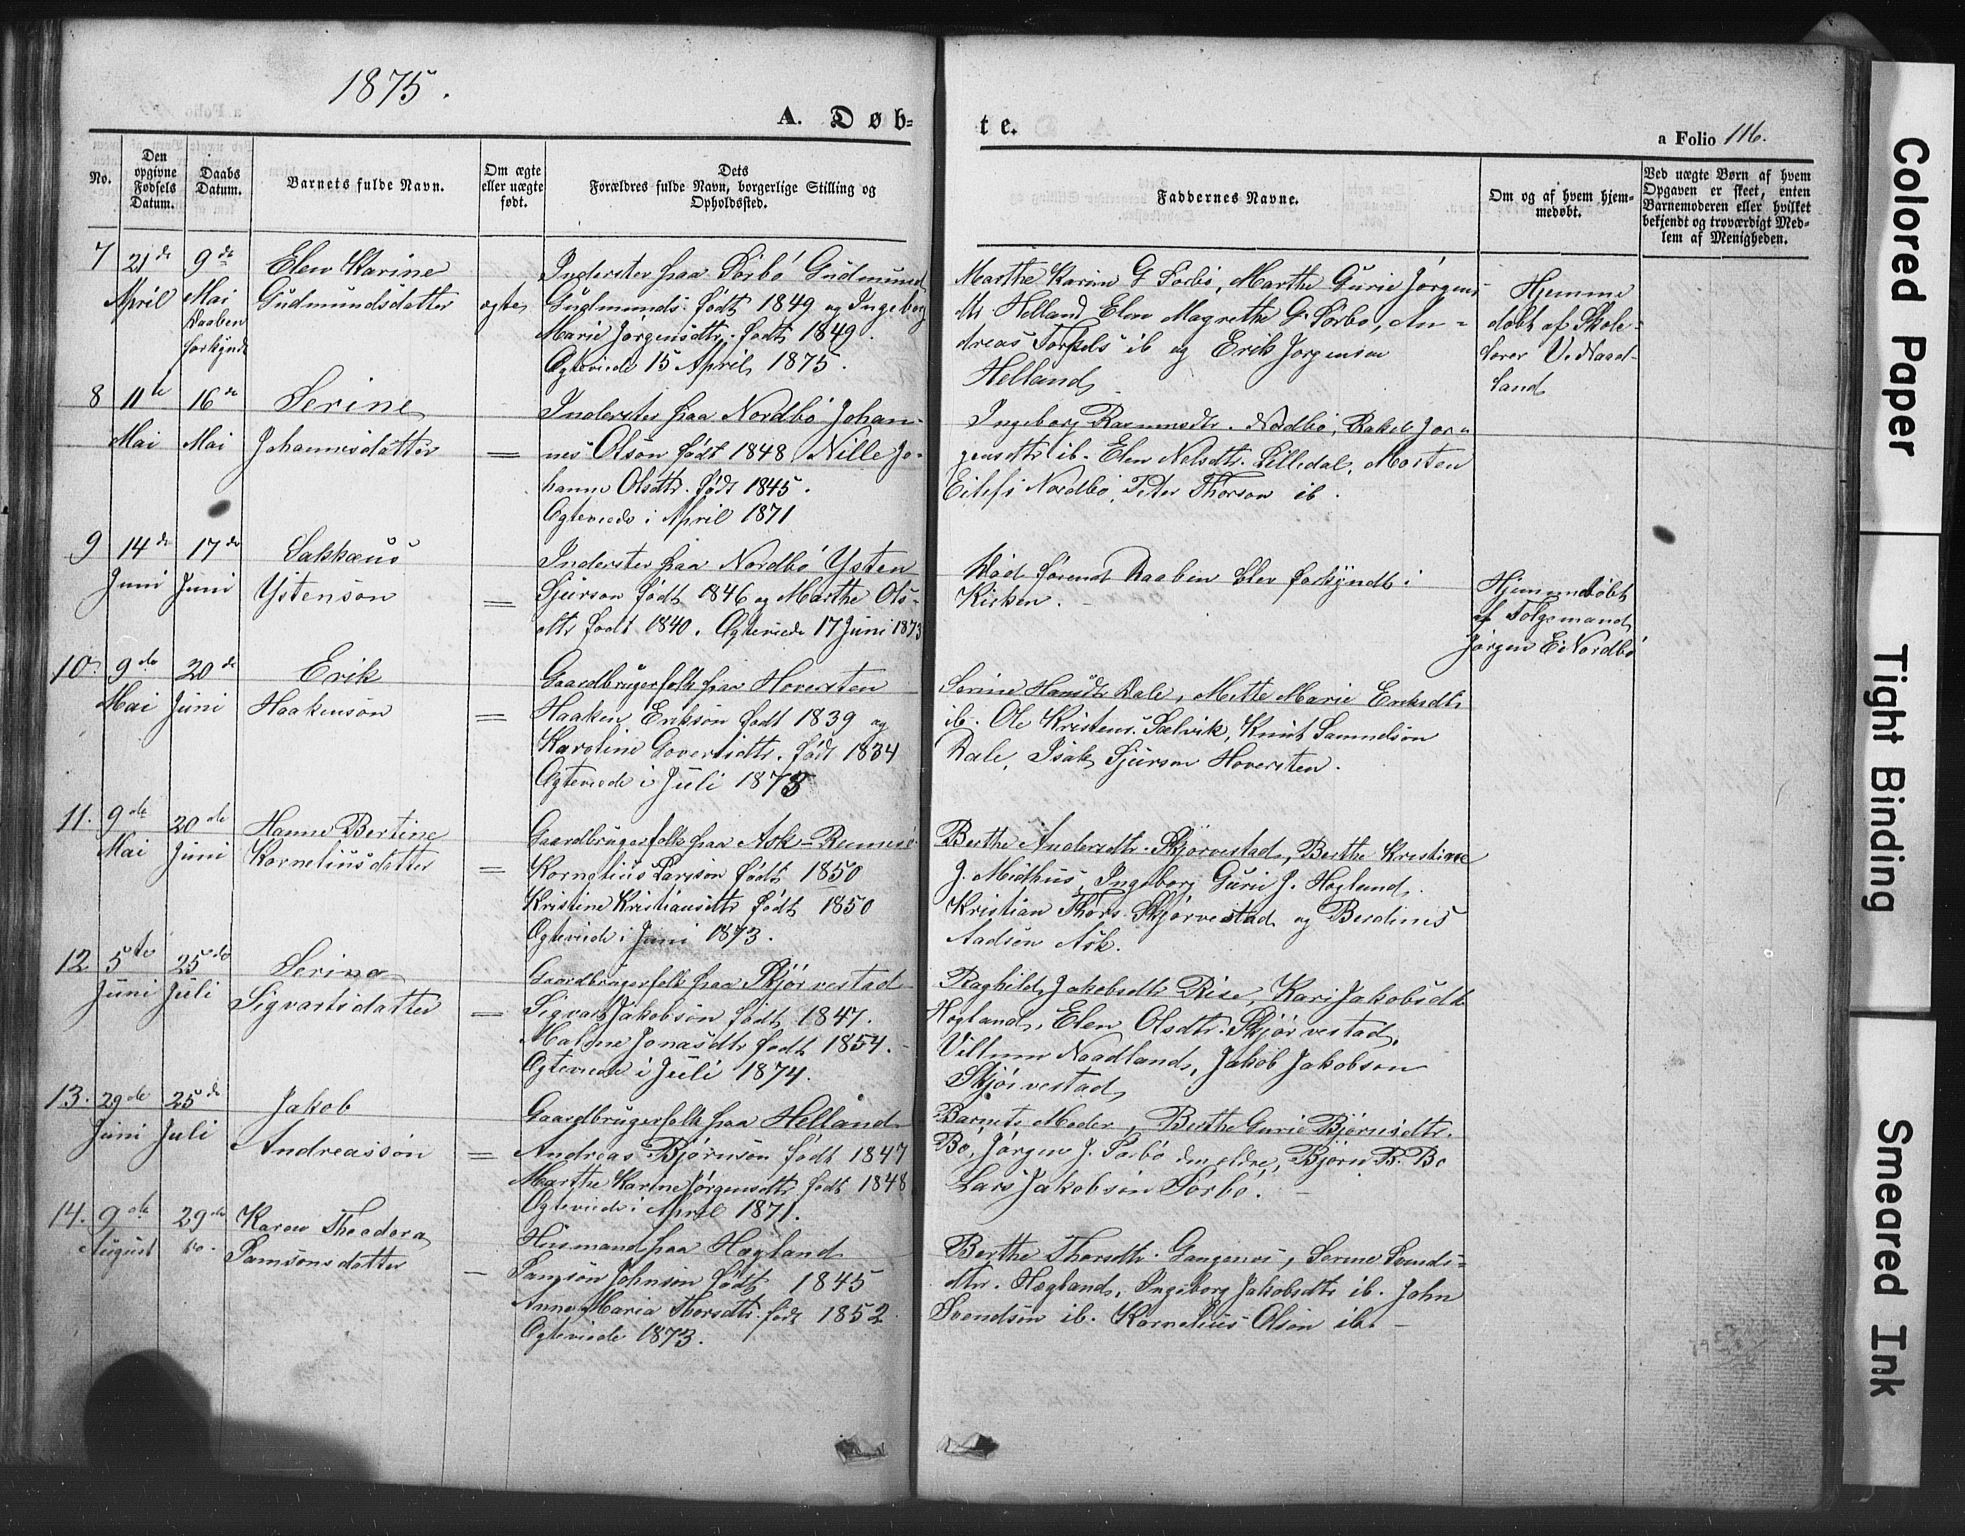 1875.
A. Døb-
te.
a Folio 116.
No.
Den
opgivne
Fødsels
Datum.
Daabs
Datum.
Barnets fulde Navn.
Om ægte
eller uægte
født.
Dets
Forældres fulde Navn, borgerlige Stilling og
Opholdssted.
Faddernes Navne.
Om og af hvem hjem-
medøbt.
Ved uægte Børn af hvem
Opgaven er skeet, enten
Barnemoderen eller hvilket
bekjendt og troværdigt Med-
lem af Menigheden.
7
21de
April
9de
Mai
Daaben
forkyndt
Elen Karine
Gudmundsdatter
ægte
Inderster paa Sørbø Gudmund
Gudmunds. født 1849 og Ingeborg
Marie Jørgensdtr. født 1849.
Ægteviede 15 April 1875.
Marthe Karine G Sørbø, Marthe Gurie Jørgens
Helland, Elen Magrethe G. Sørbø, An-
dreas Torkels ib og Erik Jørgensen
Helland
Hjemme
døbt af Skole-
lærer V. Naad-
land
8
11te
Mai
16de
Mai
Serine
Johannesdatter
=
Inderster paa Nordbø Johan-
nes Olson født 1848 Nille Jo-
hanne Olsdtr. født 1845.
Ægteviede i April 1871
Ingeborg Rasmusdtr. Nordbø, Rakel Jør-
gensdtr ib. Elen Nelsdtr. Lilledal, Morten
Eilefs Nordbø, Peter Thorson ib.
9
14de
Juni
17de
Juni
Sakkæus
Ystenson
=
Inderster paa Nordbø Ysten
Sjurson født 1846 og Marthe Ols-
dtr født 1840. Ægteviede 17 Juni 1873
Død førend Daaben blev forkyndt i
Kirken.
Hjemmedøbt
af Følgemand
Jørgen E. Nordbø
10.
9de
Mai
20de
Juni
Erik
Haakenson
=
Gaardbrugerfolk paa Hoversten
Haaken Erikson født 1839 og
Karoline Govertsdtr. født 1834
Ægteviede i Juli 1873
Serine Hansdtr Dale, Mette Marie Eriksdtr
ib. Ole Kristens. Sælvik, Knut Samuelson
Dale, Isak Sjurson Hoversten.
11.
9de
Mai
20de
Juni
Hanne Bertine
Korneliusdatter
=
Gaardbrugerfolk paa Ask-
Kornelius Larsson født 1850
Kristine Kristiansdtr født 1850
Ægteviede i Juni 1873.
Berthe Andersdtr. Skjørvestad, Berthe Kristine
J. Midthus, Ingeborg Gurie J. Hogland,
Kristian Thors. Skjørvestad og Berdines
Aadsøn Ask.
12
5te
Juni
25de
Juli
Serina
Sigvartsdatter
=
Gaardbrugerfolk paa Skjørvestad
Sigvart Jakobson født 1847.
Malene Jonasdtr født 1854.
Ægteviede i Juli 1874.
Raghild Jakobsdtr Rise, Kari Jakobsdtr
Hogland, Elen Olsdtr. Skjørvestad,
Villum Naadland, Jakob Jakobson
Skjørvestad
13.
29de
Juni
25de
Juli
Jakob
Andreasson
=
Gaardbrugerfolk paa Helland
Andreas Bjørnson født 1847
Marthe Karine Jørgensdtr født 1848
Ægteviede i April 1871.
Barnets Moder, Berthe Gurie Bjørnsdtr.
Bø, Jørgen J. Sørbø den eldre, Bjørn B. Bø
Lars Jakobsen Sørbø.
14.
9de
August
29de
do.
Karen Theodora
Samsonsdatter
–
Husmand paa Hægland
Samson Johnson født 1845
Anne Maria Thorsdtr. født 1852.
Ægteviede 1873.
Berthe Thorsdtr. Gangenes, Serine Svends-
dtr. Hægland, Ingeborg Jakobsdtr ib. John
Svendson ib. Kornelius Olson ib.
Colored Paper
Tight Binding
Smeared Ink